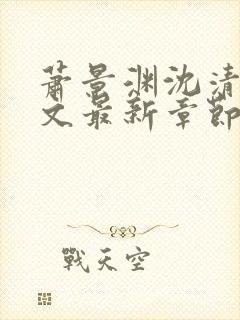 萧景渊沈清
文最新章節
戰天空